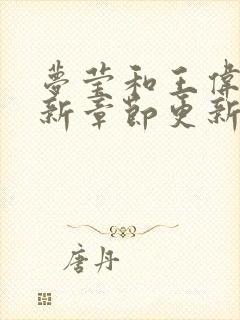 夢莹和王偉
新章節更新
唐丹